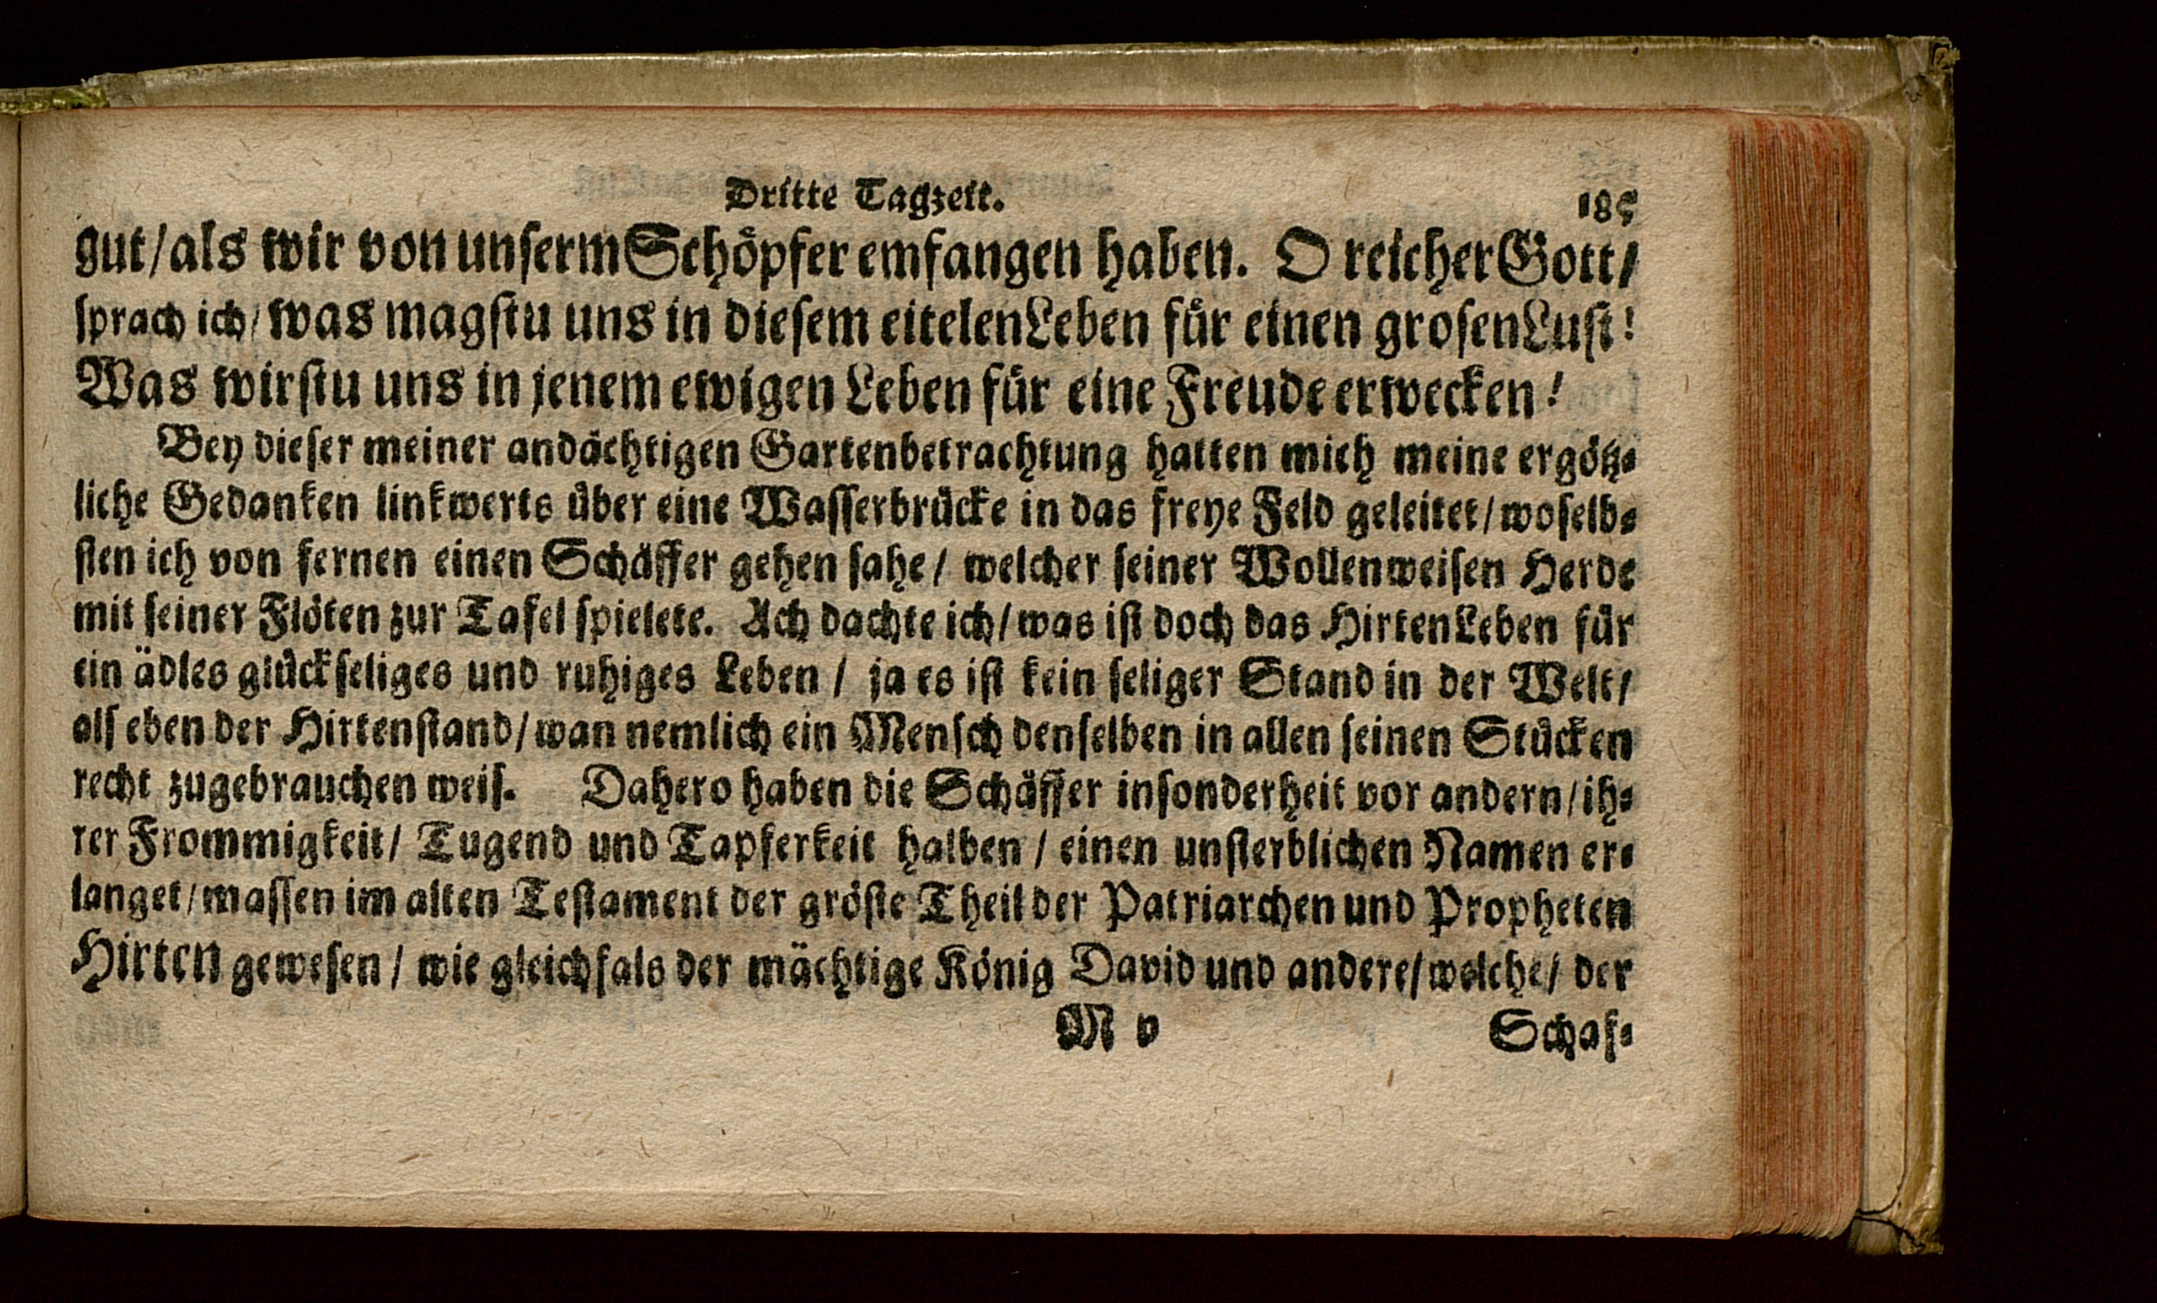 Dritte Tagzeit. 185
gut/als wir von unserm Schöpfer emfangen haben. O reicher Gott/
sprach ich/ was magstu uns in diesem eitelen Leben für einen grosen Lust!
Was wirstu uns in jenem ewigen Leben für eine Freude erwecken!
Bey dieser meiner andächtigen Gartenbetrachtung hatten mich meine ergötz-
liche Gedanken linkwerts über eine Wasserbrücke in das freye Feld geleitet/woselb-
sten ich von fernen einen Schäffer gehen sahe/ welcher seiner Wollenweisen Herde
mit seiner Flöten zur Tafel spielete. Ach dachte ich/was ist doch das HirtenLeben für
ein ädles glückseliges und ruhiges Leben / ja es ist kein seliger Stand in der Welt/
als eben der Hirtenstand/wan nemlich ein Mensch denselben in allen seinen Stücken
recht zugebrauchen weis. Dahero haben die Schäffer insonderheit vor andern/ih-
rer Frommigkeit/ Tugend und Tapferkeit halben / einen unsterblichen Namen er-
langet/massen im alten Testament der gröste Theil der Patriarchen und Propheten
Hirten gewesen / wie gleichfals der mächtige König David und andere/welche/ der
M v Schaf-